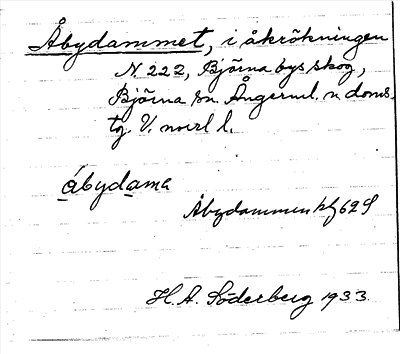 Åbydammet, i åkrökningen
N. 222, Björna bys skog,
Björna sn. Ångerml. n. doms.
tg. V. norrl l.
ábydama
Åbydammen kbl 62 S
H. A. Söderberg 1933.